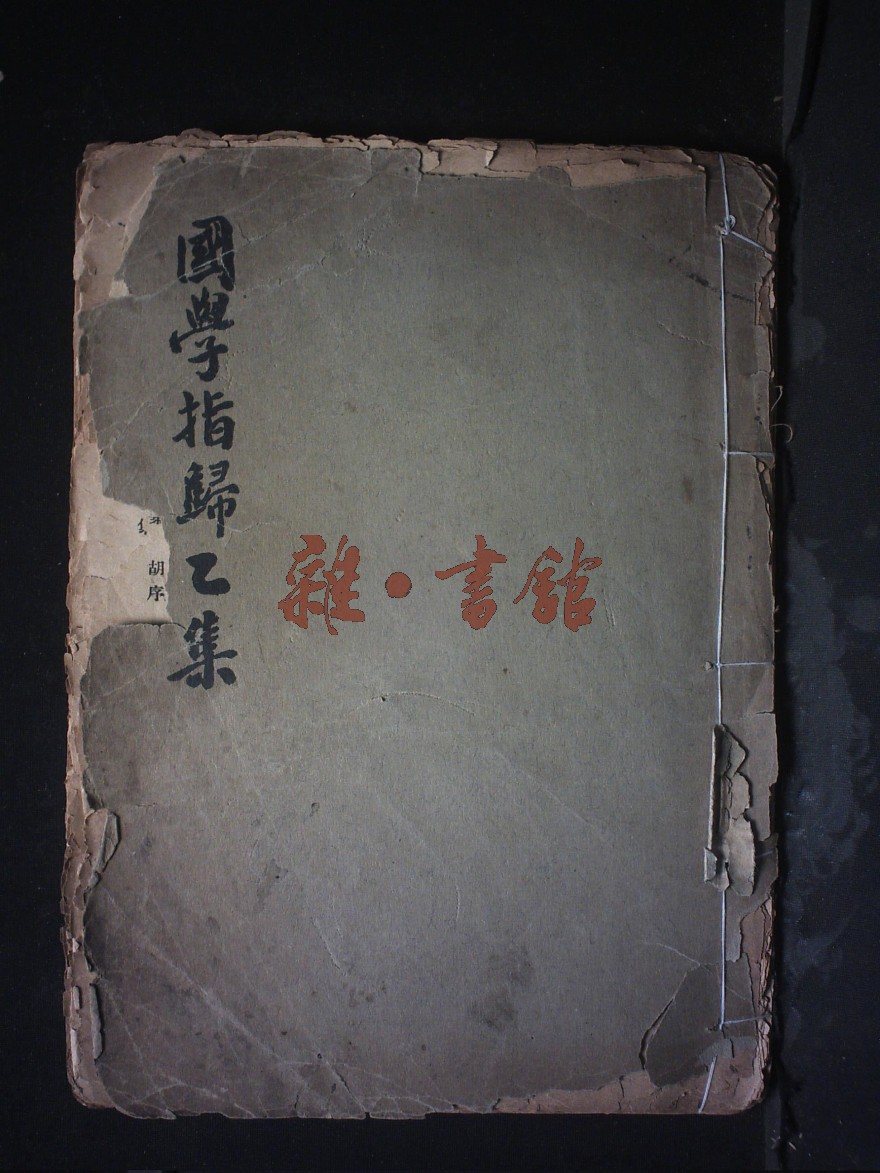 國學指歸乙集
胡序
雜·書館